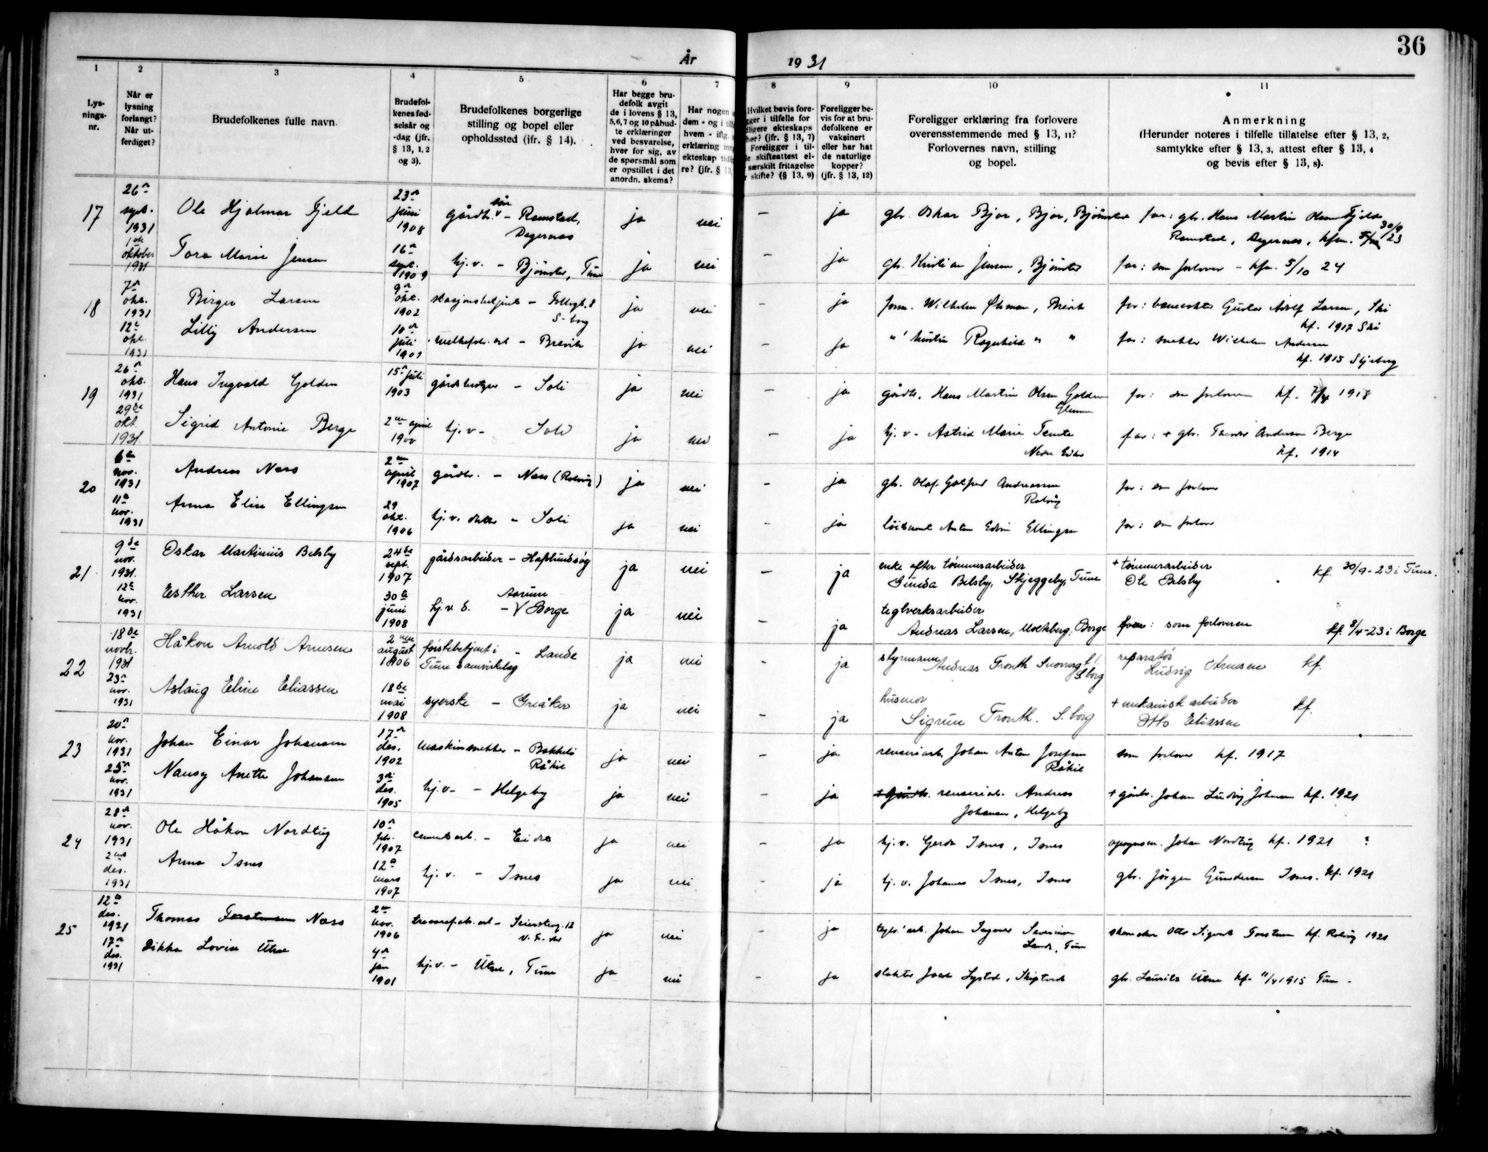 36
År 1931
1
2
3
4
5
6
7
8
9
10
11
Lys-
nings-
nr.
Når er
lysning
forlangt?
Når ut-
ferdiget?
Brudefolkenes fulle navn.
Brudefol-
kenes fød-
selsår og
-dag (jfr.
§ 13, 1, 2
og 3).
Brudefolkenes borgerlige
stilling og bopel eller
opholdssted (jfr. § 14).
Har begge bru-
defolk avgitt
de i lovens § 13,
5,6,7 og 10 påbud-
te erklæringer
ved besvarelse,
hver for sig, av
de spørsmål som
er opstillet i det
anordn. skema?
Har nogen
dem - og i
hvem - iflg.
erklæring in
ekteskap tid
re? (jfr. § 13,
Hvilket bevis fore-
ger i tilfelle for
ligere ekteskaps
hør? (jfr. § 13, 7)
Foreligger i til-
le skifteattest el-
særskilt fritagelse
skifte? (§ 13, 9)
Foreligger be-
vis for at bru-
defolkene er
vaksinert
eller har hat
de naturlige
kopper?
(jfr. § 13, 12)
Foreligger erklæring fra forlovere
overensstemmende med § 13, 11?
Forlovernes navn, stilling
og bopel.
Anmerkning
(Herunder noteres i tilfelle tillatelse efter § 13, 2,
samtykke efter § 13, 3, attest efter § 13, 4
og bevis efter § 13, 8).
17
26n
sept.
1931
Ole Hjalmar Fjeld
23n
juni
1908
gårdb. sønn - Ramstad,
Degernes
ja
nei
–
ja
gb. Oskar Bjor, Bjor, Bjørnstad
far: gb. Hans Martin Olsen Fjeld
Ramstad, Degernes, kfm. 30/9 23
1ste
oktober
1931
Tora Marie Jensen
16n
sept.
1909
hj.v. - Bjørnstad, Tune
ja
nei
–
ja
gb. Kristian Jensen, Bjørnstad
far: som forlover - kfm. 5/10 24
18
7n
okt.
1931
Birger Larsen
9n
okt.
1902
stasjonsbetjent - 
S-borg
ja
nei
–
ja
form. Wilhelm Øhman, Brevik
far: banevokter Gustav Adolf Larsen, Ski
kf. 1917 Ski
12te
okt.
1931
Lilly Andersen
10n
juli
1907
- Brevik
ja
nei
–
ja
" hustru Ragnhild " "
far: snekker Wilhelm Andersen
kf. 1915 Skjeberg
19
26n
okt.
1931
Hans Ingvald Golden
15n juli
1903
gårdsbestyrer - Soli
ja
nei
–
ja
gårdb. Hans Martin Olsen Golden
Glemmen
far: som forloveren kf. 7/4 1918
29de
okt.
1931
Sigrid Antonie Berge
2nen april
1900
hj.v. - Soli
ja
nei
–
ja
hj. v - Astrid Marie Tomte
Nedre Eides
far: + gb. Anderson Berge
kf. 1914
20
6te
nov.
1931
Andreas Næss
2nen
april
1907
gårdb. - Næss (Rolvsøy)
ja
nei
–
ja
gb. Olaf Gotfred Andreassen
Rolvsøy
far: som forlover
11te
nov.
1931
Anna Elise Ellingsen
29
okt.
1906
hj.v. datter - Soli
ja
nei
–
ja
løitnant Anton Edvin Ellingsen
far: som forlover
21
9de
nov.
1931
Oskar Martinius Belsby
24de
sept.
1907
gårdsarbeider - Hafslundsøy
ja
nei
–
ja
enke efter tømmerarbeider
Gunda Belsby, Skjeggeby, Tune
+ tømmerarbeider
Ole Belsby
kf. 30/9-23 i Tune.
12te
nov.
1931
Esther Larsen
30te
juni
1908
hj.v. d. - V Borge
ja
nei
–
ja
teglverksarbeider
Andreas Larsen, Moenberg, Borge
far: som forloveren
kf. 8/4-23 i Borge
22
18de
novbr.
1931
Håkon Arnold Arnesen
2nen
august
1906
førstebetjent i - Lande
Tune samvirkelag
ja
nei
–
ja
styrmann Andreas Fronth
S.borg
reparatør
Ludvig Arnesen
kf.
23n
nov.
1931
Aslaug Eline Eliassen
18de
mai
1908
syerske - Greåker
ja
nei
–
ja
husmor
Sigrun Fronth. S.borg
+ mekanisk arbeider
Otto Eliassen
kf.
23
20n
nov.
1931
Johan Einar Johansen
17n
des.
1902
maskinsnekker - Bakkeli
Råkil
ja
nei
–
ja
renseriarb. Johan Anton Josefsen
Råkil
som forlover kf. 1917
25n
nov.
1931
Nansy Anette Johansen
3n
des.
1905
hj.v. - Helgeby
ja
nei
–
ja
+ gårdb. renseriarb. Andreas
Johansen, Helgeby
+ gårdb. Johan Ludvig Johansen kf. 1921
24
28n
nov.
1931
Ole Håkon Nordtug
10n
feb.
1907
cementarb. - Eidet
ja
nei
–
ja
hj.v. Gerda Isnes, Isnes
Johan Nordtug kf. 1921 ?
2nen
des.
1931
Anna Isnes
12n
mars
1907
hj.v. - Isnes
ja
nei
–
ja
hj.v. Johannes Isnes, Isnes
gb. Jørgen Gundersen Isnes. kf. 1921
25
12n
des.
1931
Thomas Forstmann Næss
2nen
nov.
1906
ja
nei
–
ja
arb. Johan Severinsen
Lande, Tune
Otto Sigurd kf. Rolvsøy 1921
17n
des.
1931
Dikka Lovise Utne
4n
jan
1901
hj.v. - Utne, Tune
ja
nei
–
ja
slakter
gb. Laurits Utne kf. 1915 Tune -